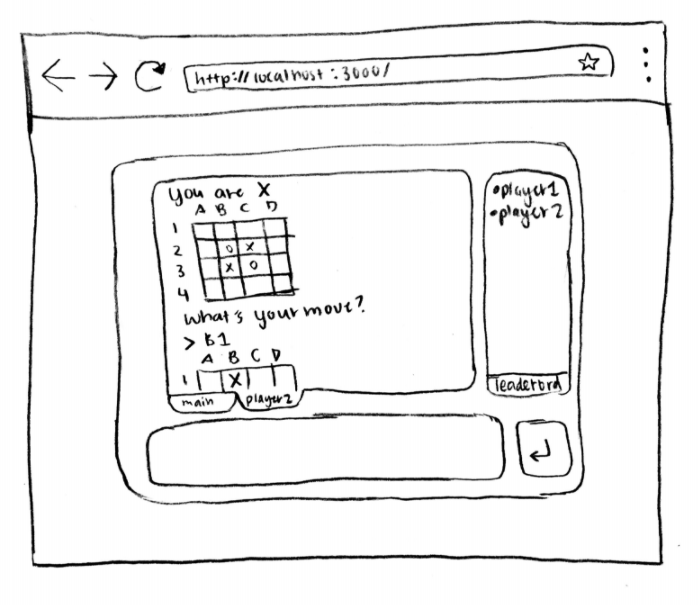 http://localhost:3000/
You are X
A B C D
1
2 O X
3 X O
4
What's your move?
> B1
A B C D
1 X
main player2
•player1
•player2
leaderbrd